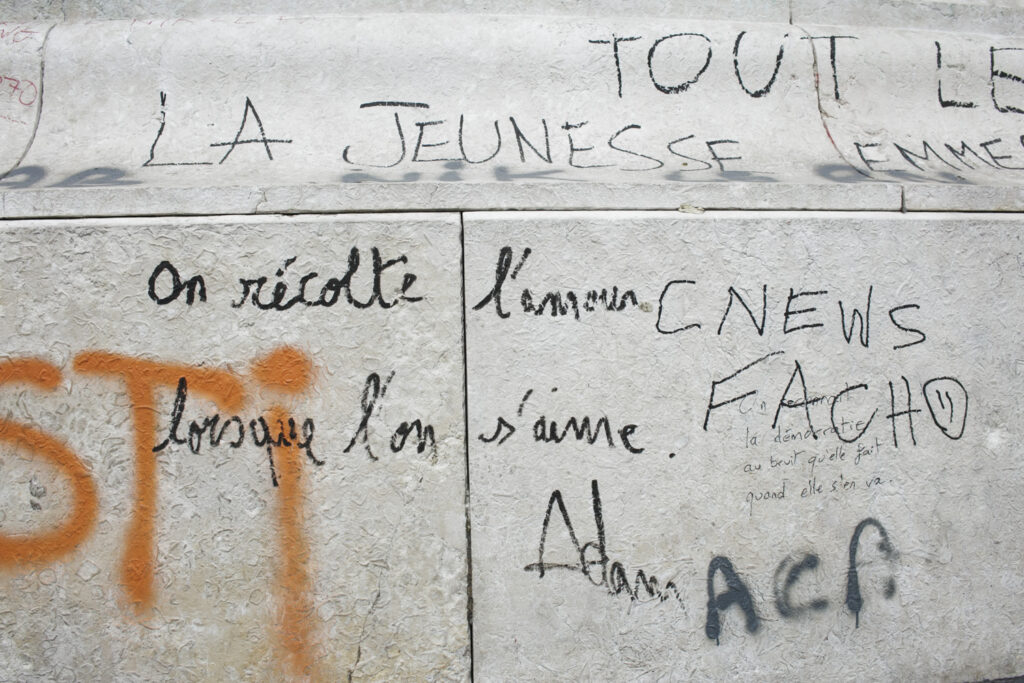 TOUT LE
LA JEUNESSE EMMERDE
On récolte l'amour
lorsque l'on s'aime.
Adam
CNEWS
FACHO
la démocratie
au bruit qu'elle fait
quand elle s'en va.
STi